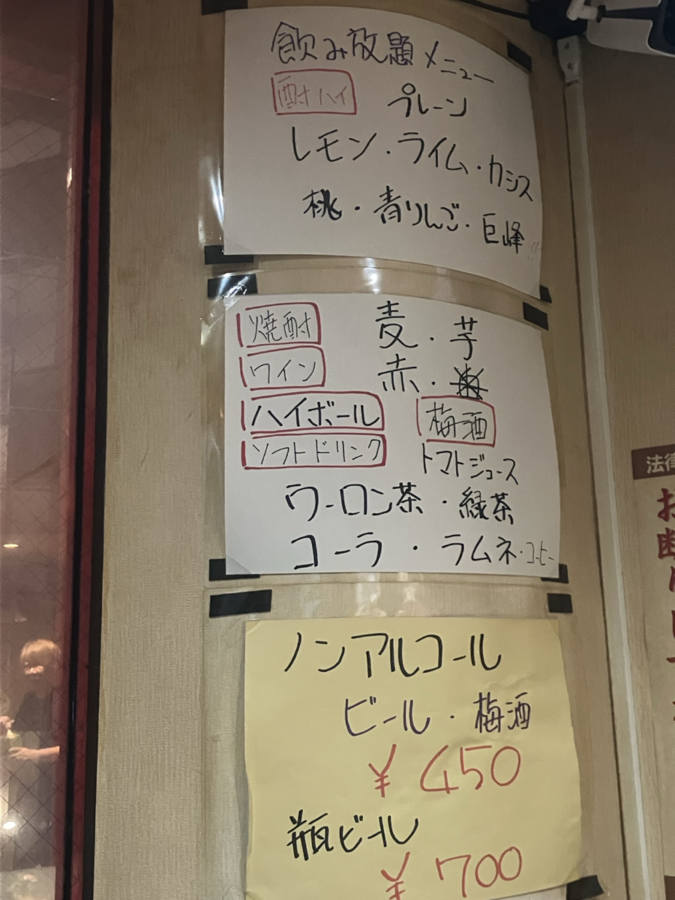 飲み放題メニュー
酎ハイ プレーン
レモン・ライム・カシス
桃・青りんご・巨峰
焼酎 麦・芋
ワイン 赤・
ハイボール 梅酒
ソフトドリンク トマトジュース
ウーロン茶・緑茶
コーラ・ラムネ・コーヒー
ノンアルコール
ビール・梅酒
¥450
瓶ビール
¥700
法律
お断りして